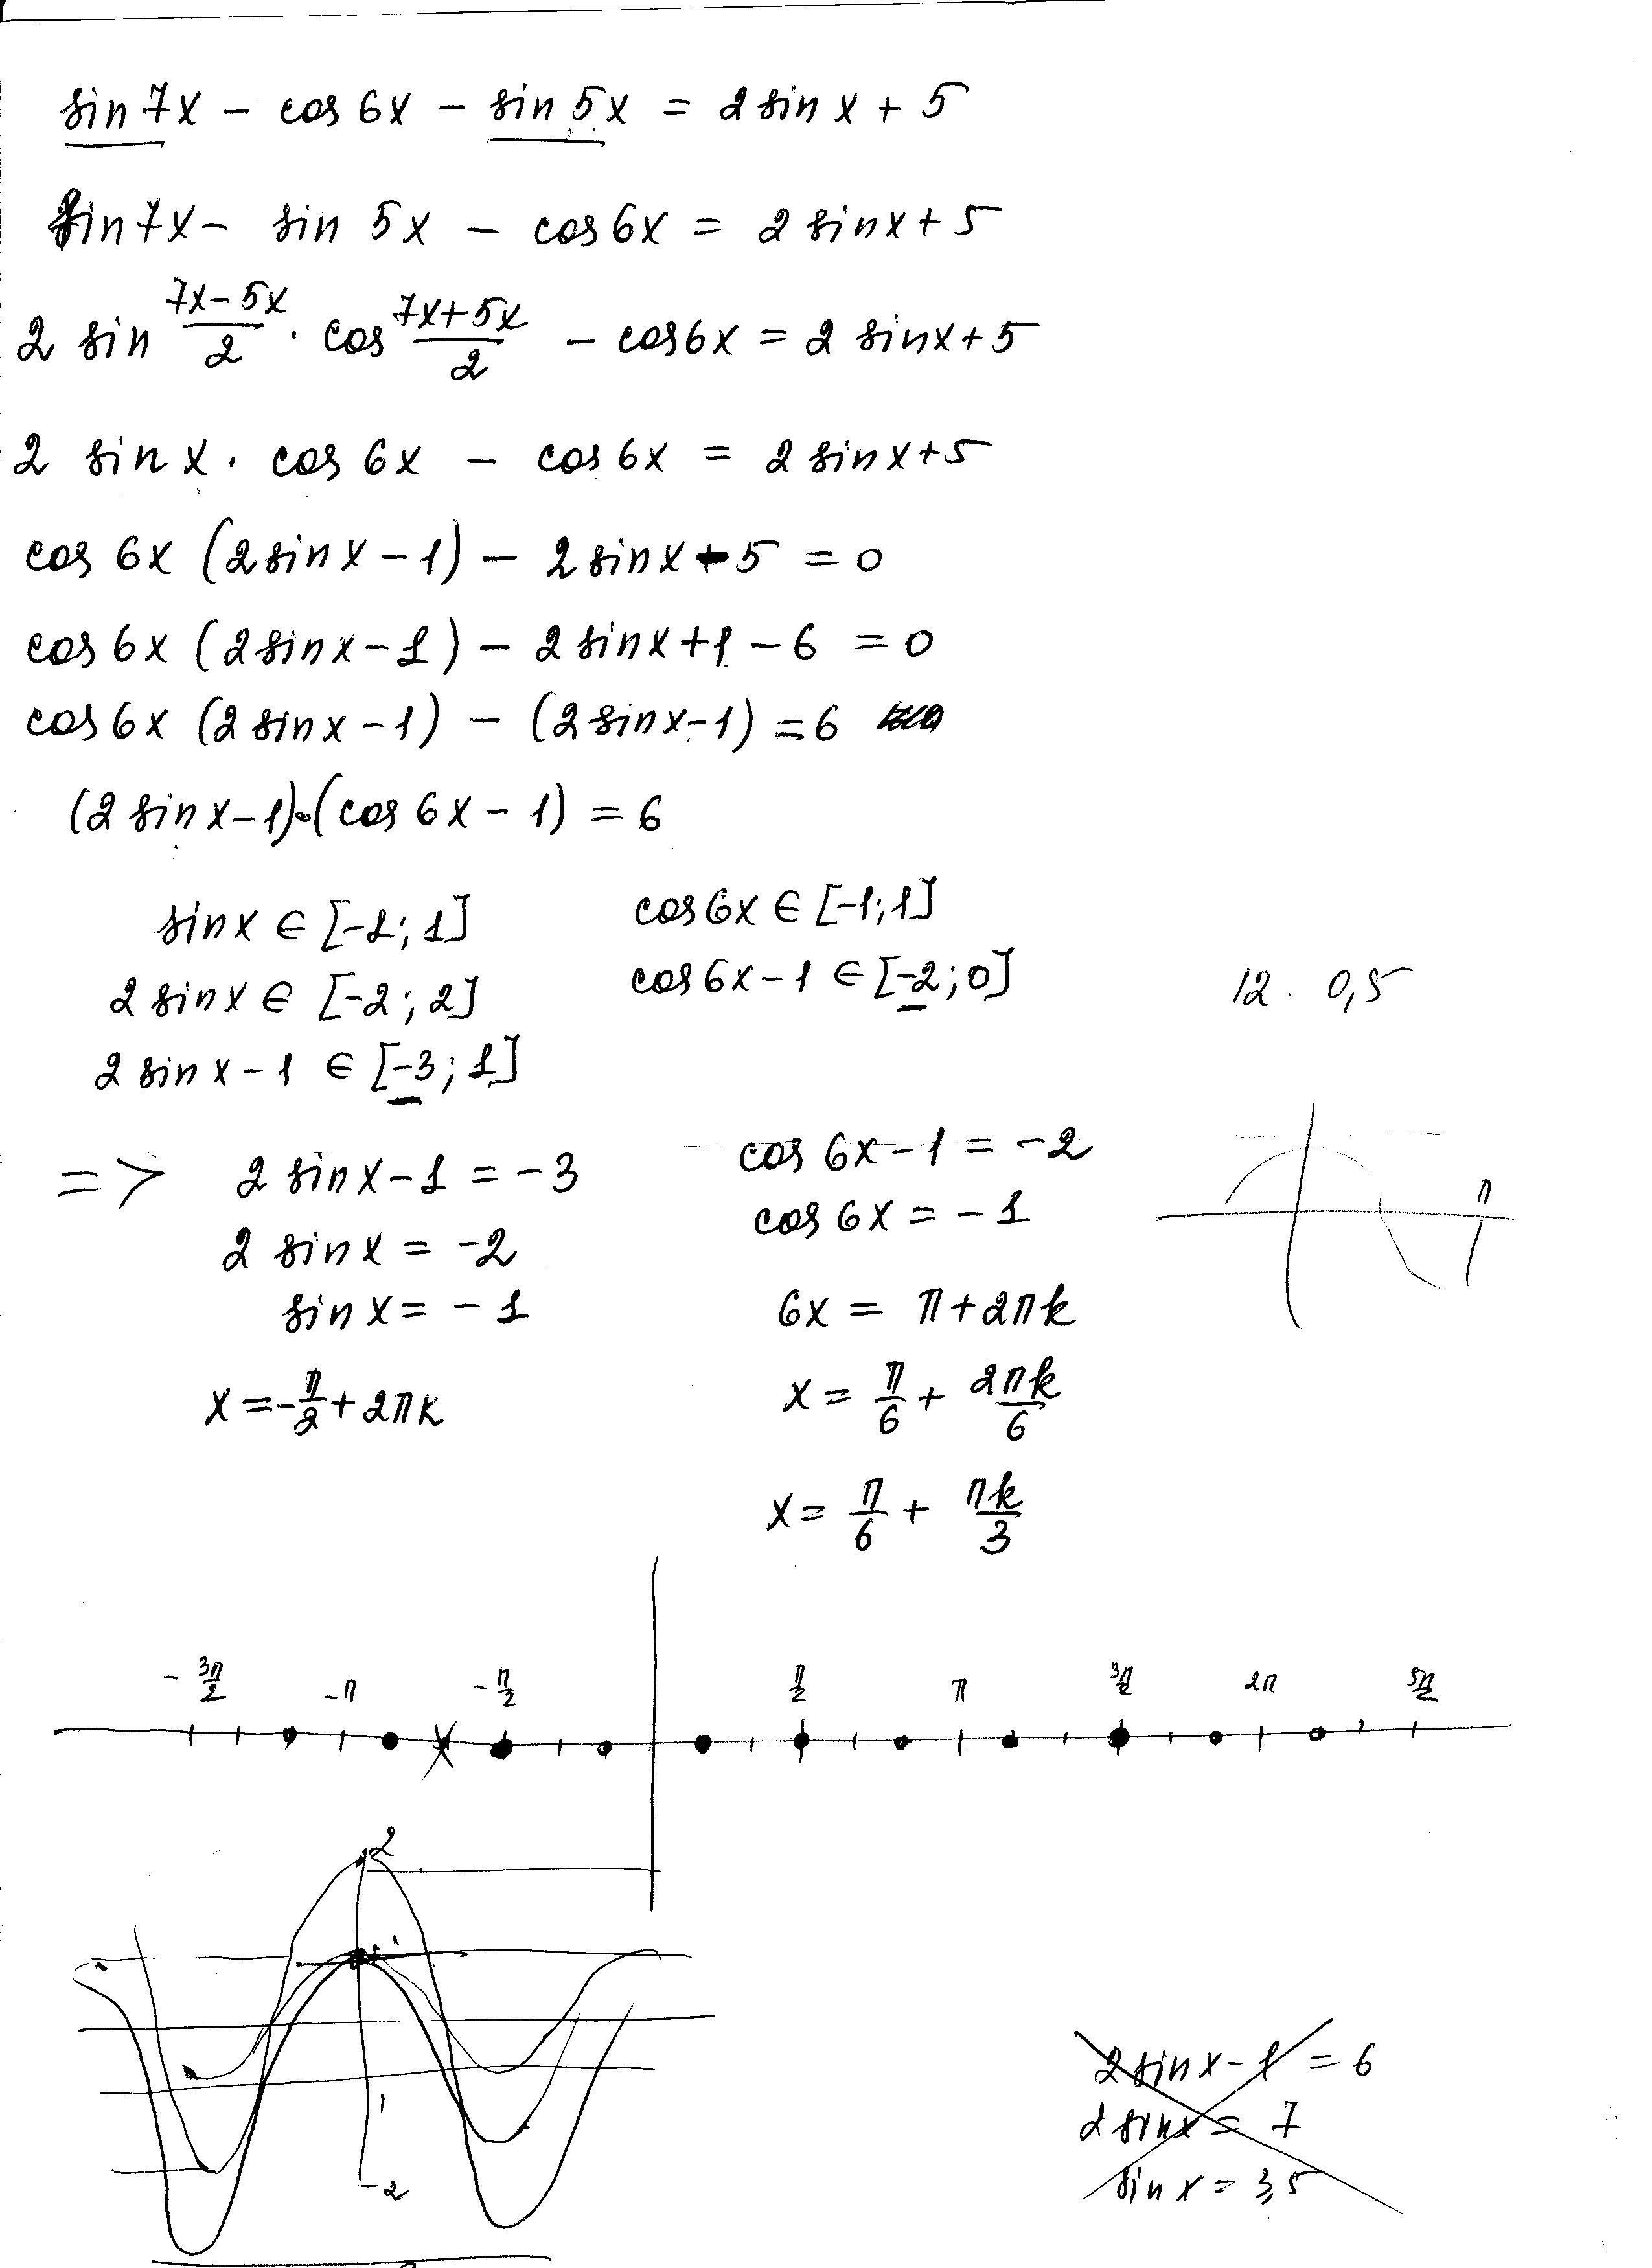 sin 7x - cos 6x - sin 5x = 2 sin x + 5
sin 7x - sin 5x - cos 6x = 2 sin x + 5
2 sin (7x-5x)/2 · cos (7x+5x)/2 - cos 6x = 2 sin x + 5
2 sin x · cos 6x - cos 6x = 2 sin x + 5
cos 6x (2 sin x - 1) - 2 sin x - 5 = 0
cos 6x (2 sin x - 1) - 2 sin x + 1 - 6 = 0
cos 6x (2 sin x - 1) - (2 sin x - 1) = 6
(2 sin x - 1)·(cos 6x - 1) = 6
sin x ∈ [-1; 1]
2 sin x ∈ [-2; 2]
2 sin x - 1 ∈ [-3; 1]
cos 6x ∈ [-1; 1]
cos 6x - 1 ∈ [-2; 0]
12. 0,5
=> 2 sin x - 1 = -3
2 sin x = -2
sin x = -1
x = -π/2 + 2πk
cos 6x - 1 = -2
cos 6x = -1
6x = π + 2πk
x = π/6 + 2πk/6
x = π/6 + πk/3
π
-3π/2 -π -π/2 π/2 π 3π/2 2π 5π/2
2
1
1
-2
2 sin x - 1 = 6
2 sin x = 7
sin x = 3,5